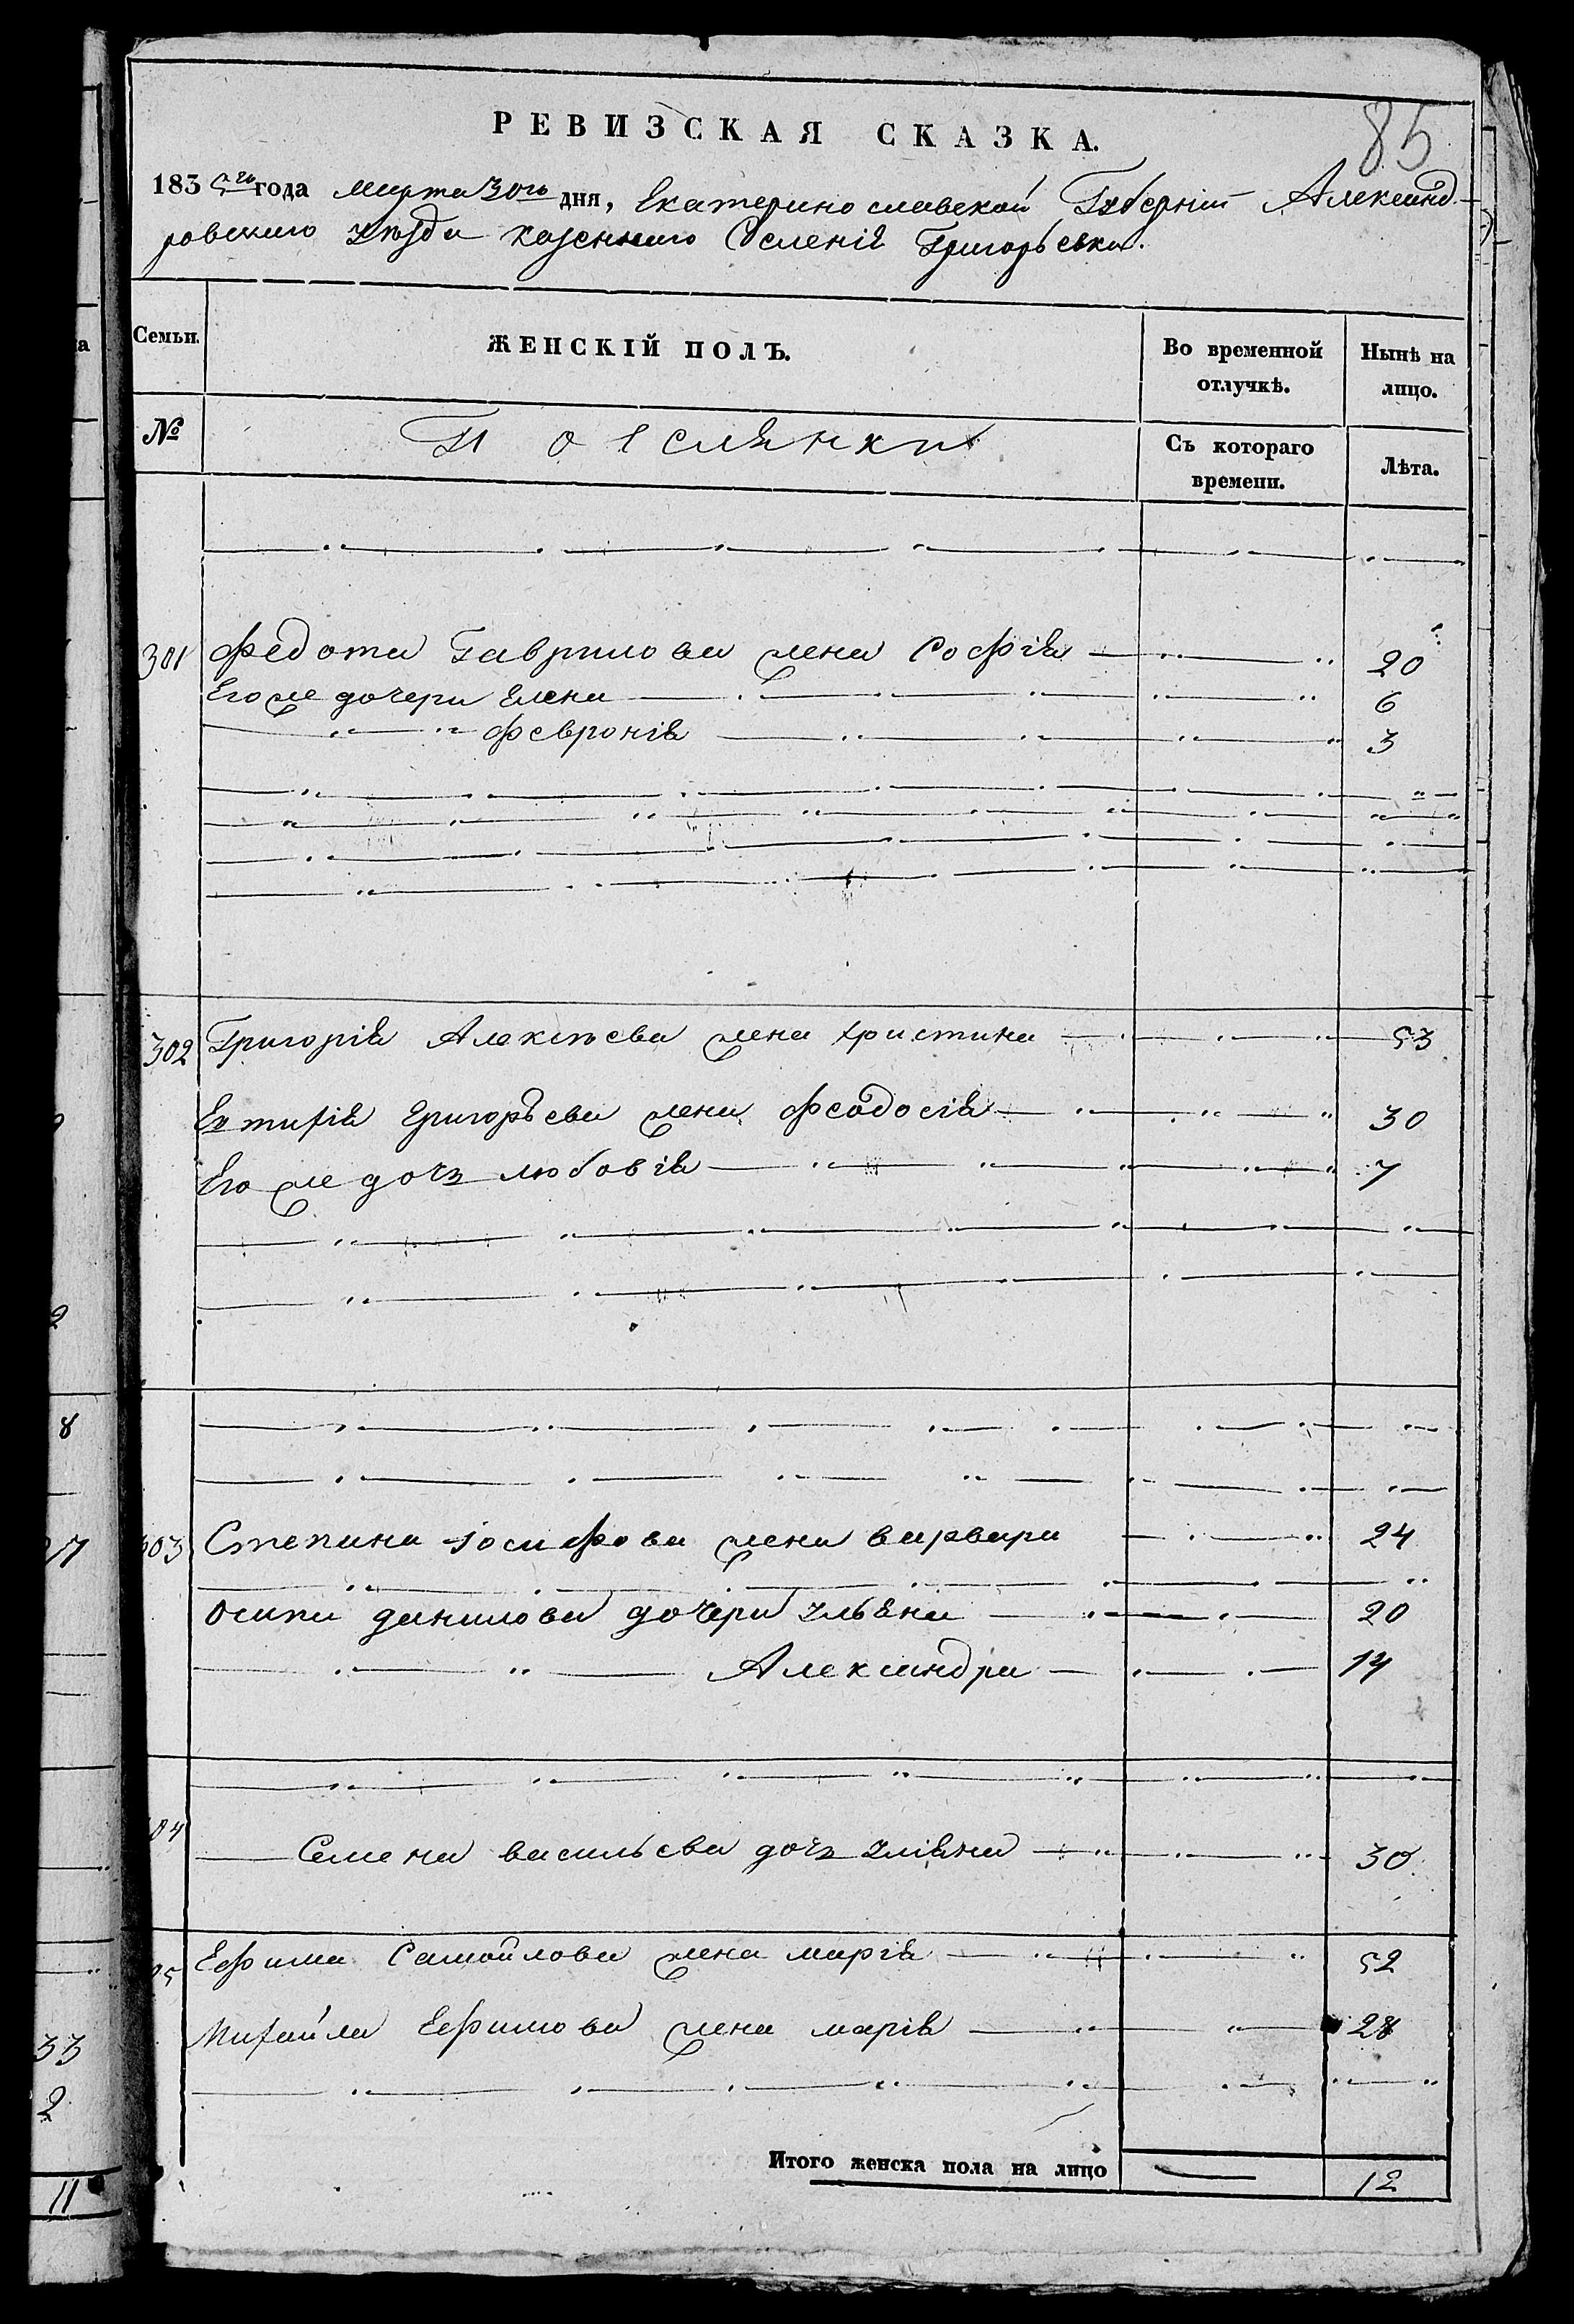 85
РЕВИЗСКАЯ СКАЗКА.
183 5го года марта 30го дня, Екатеринославской Губерніи Александ-
ровскаго уѣзда казеннаго Селенія Григорьевка.
Семьи.
ЖЕНСКІЙ ПОЛЪ.
Во временной отлучкѣ.
Нынѣ на лицо.
№
Съ котораго времени.
Лѣта.
301 Федота Гаврилова жена Софія 20
Его же дочери Елена 6
Февронія 3
302 Григорія Алексѣева жена Христина 53
Евтифія Григорьева жена Феодосія 30
Его же дочь Любовія 7
303 Степана Іосифова жена Варвара 24
Осипа Данилова дочери Ульяна 20
Александра 14
04 Семена Васильева дочь Уліяна 30
05 Ефима Самойлова жена Марія 52
Михайла Ефимова жена Марія 28
Итого женска пола на лицо 12
8
33
2
11